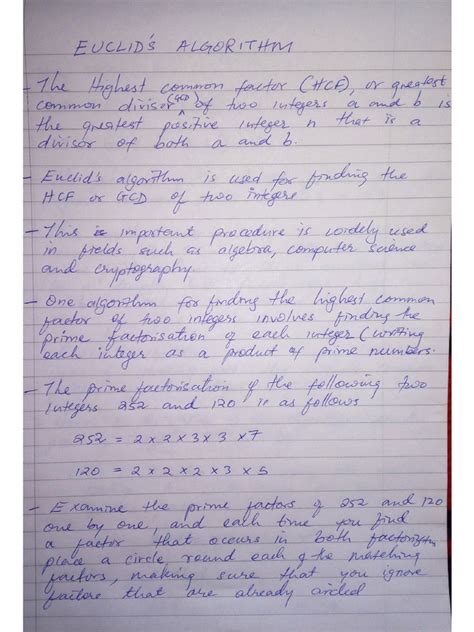 EUCLID'S ALGORITHM
- The Highest common factor (HCF), or greatest
common divisor (GCD) of two integers a and b is
the greatest positive integer n that is a
divisor of both a and b.
- Euclid's algorithm is used for finding the
HCF or GCD of two integers
- This is important procedure is widely used
in fields such as algebra, computer science
and cryptography
- One algorithm for finding the highest common
factor of two integers involves finding the
prime factorisation of each integer (writing
each integer as a product of prime numbers.
- The prime factorisation of the following two
integers 252 and 120 is as follows
252 = 2 x 2 x 3 x 3 x 7
120 = 2 x 2 x 2 x 3 x 5
- Examine the prime factors of 252 and 120
one by one, and each time you find
a factor that occurs in both factorization
place a circle round each of the matching
factors, making sure that you ignore
factors that are already circled